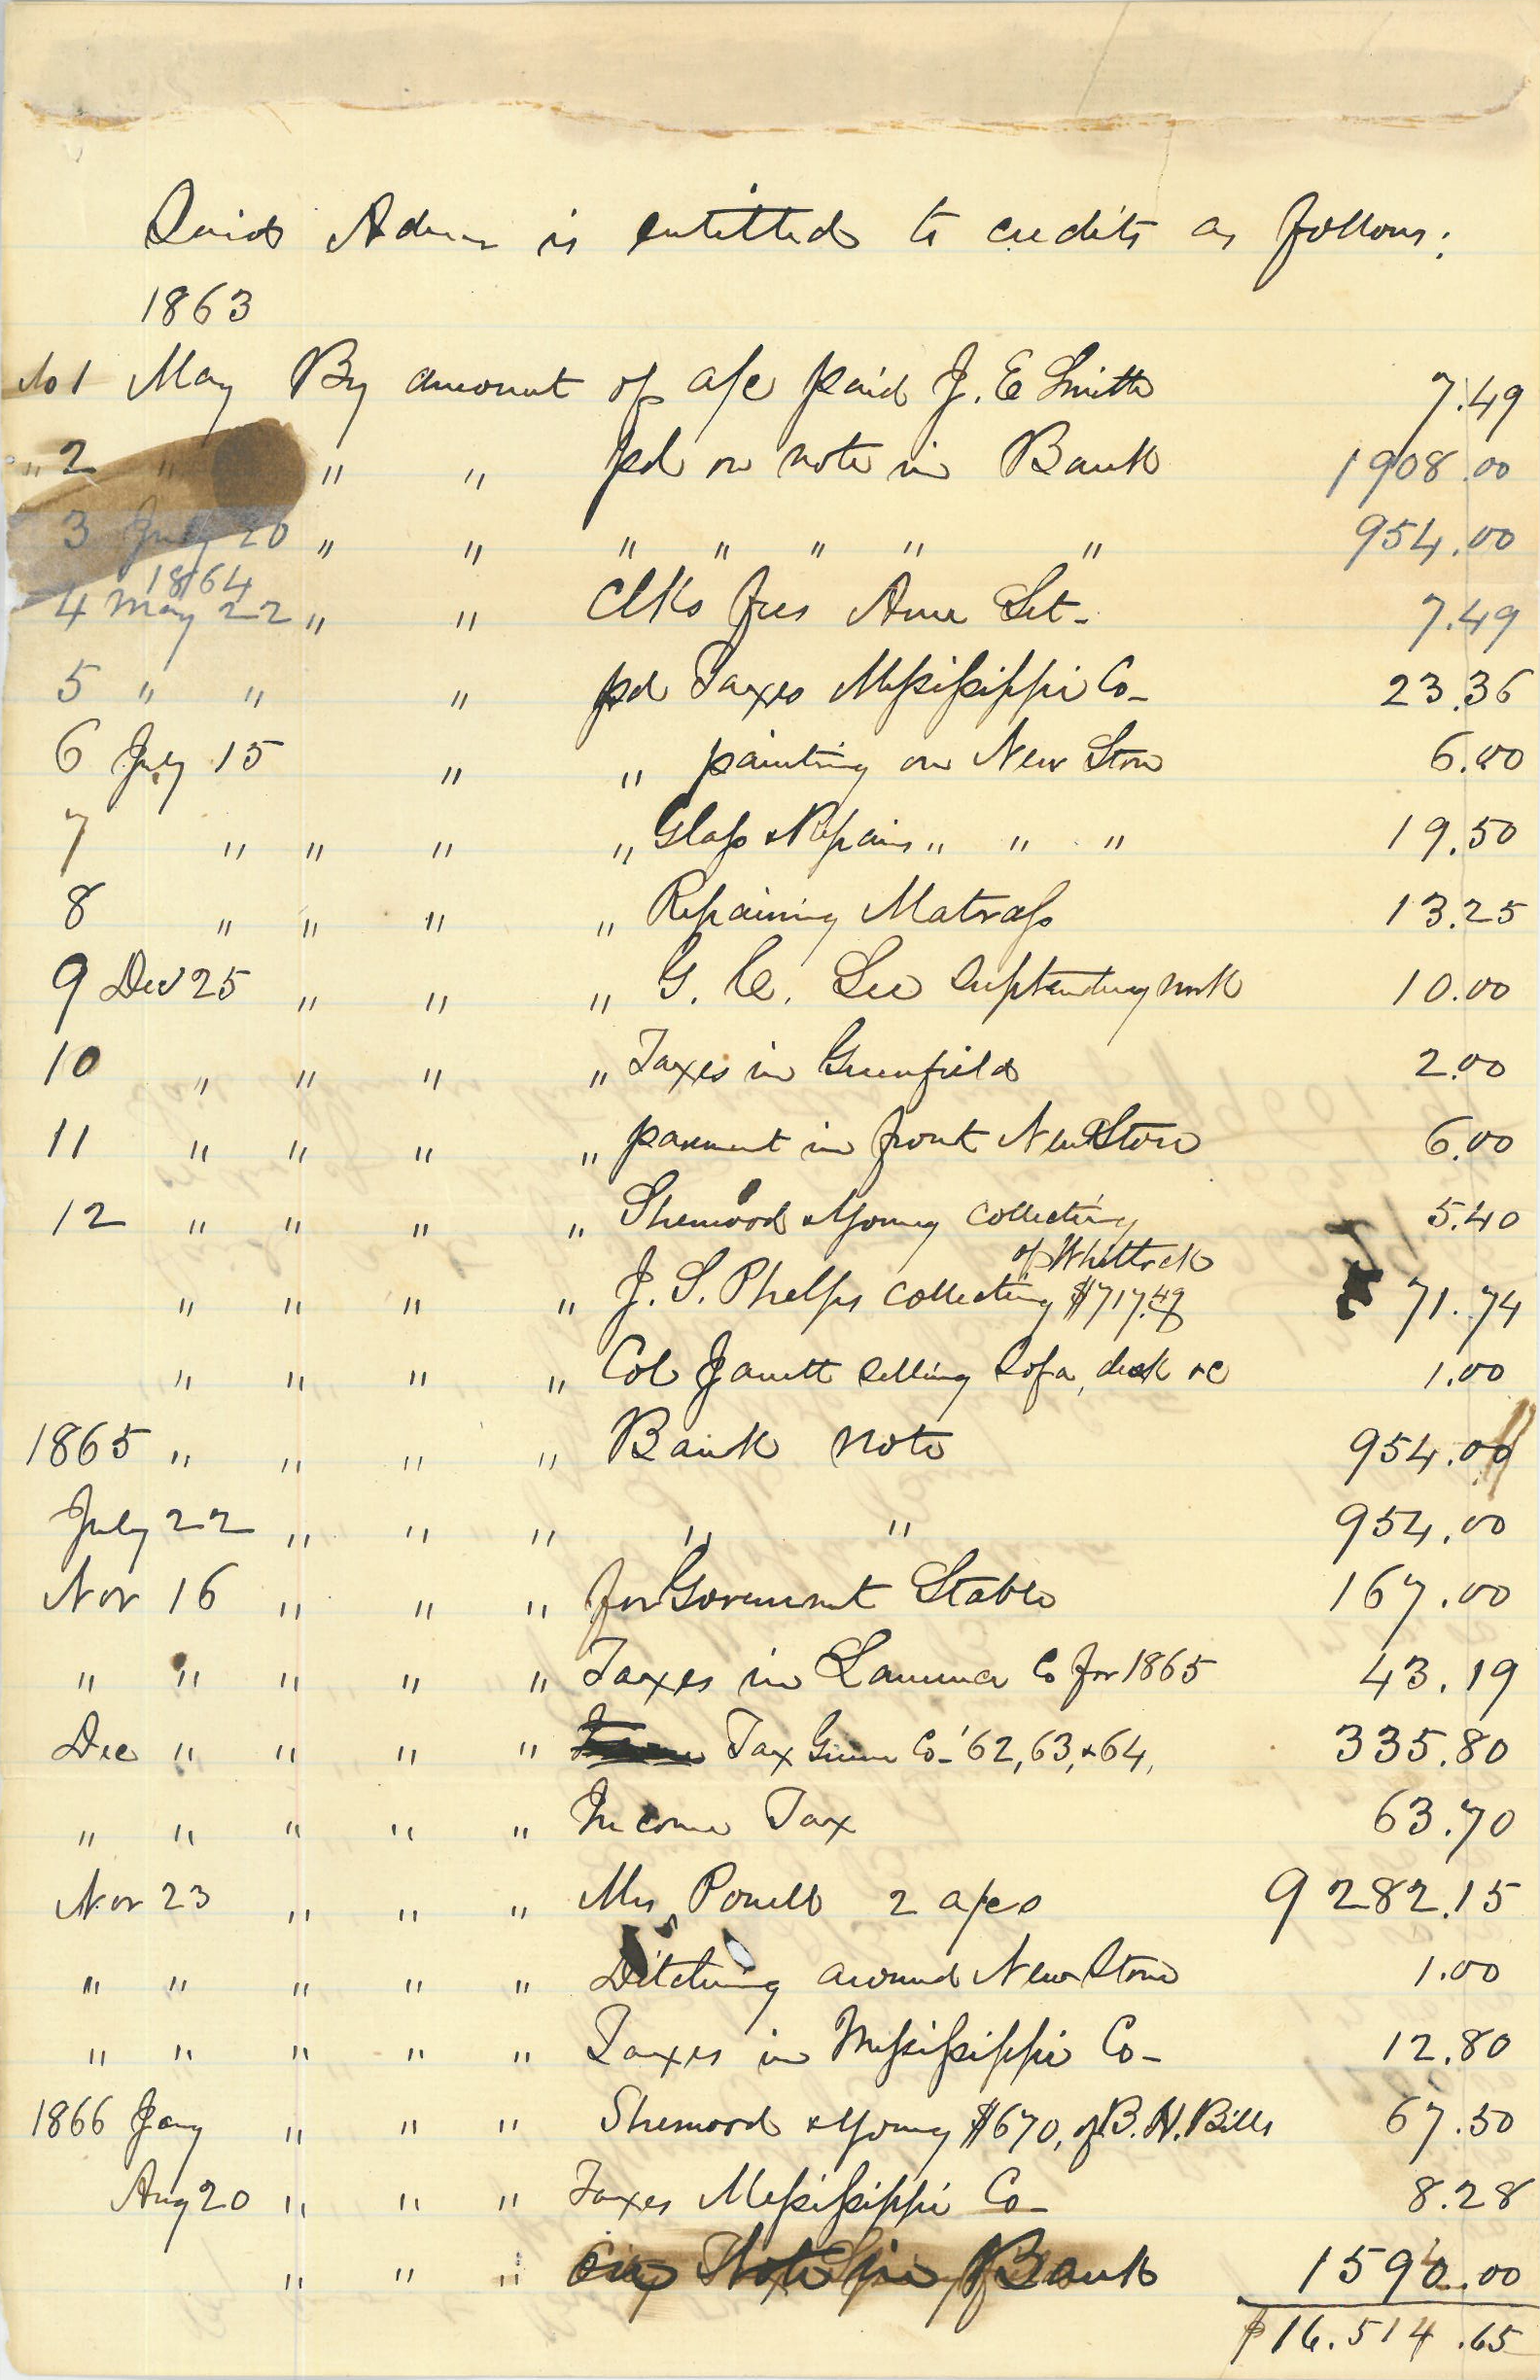 Said Admr is entitled to credits as follows:
1863
No 1 May By amount of a/c paid J. E Smith 7.49
" 2 " " " pd on note in Bank 1908.00
3 July 20 " " " " " " " 954.00
1864
4 May 22 " " Clks fees Ame Set- 7.49
5 " " " pd Taxes Mississippi Co- 23.36
6 July 15 " " painting on New Store 6.00
7 " " " " Glass & Repairs " " " 19.50
8 " " " " Repairing Matrass 13.25
9 Decr 25 " " " G. C. Lee Suptending work 10.00
10 " " " " Taxes in Greenfield 2.00
11 " " " " pavment in front New Store 6.00
12 " " " " Sherwood & Young Collecting 5.40
of Whitlock
" " " " J. S. Phelps Collecting $717.49 71.74
" " " " Col Jarrett selling Sofa, desk &c 1.00
1865 " " " " Bank note 954.00
July 22 " " " " " 954.00
Nov 16 " " " for Goverment Stable 167.00
" " " " " Taxes in Lamma Co for 1865 43.19
Dec " " " " Tax Greene Co- '62, 63, & 64, 335.80
" " " " " Income Tax 63.70
Nov 23 " " " Mrs Powell 2 a/cs 9282.15
" " " " " Ditching around New Store 1.00
" " " " " Taxes in Mississippi Co- 12.80
1866 Jany " " " Sherwood & Young $670, of B. H. Bills 67.50
Aug 20 " " " Taxes Mississippi Co- 8.28
" " " Note in Bank 1590.00
$16.514.65